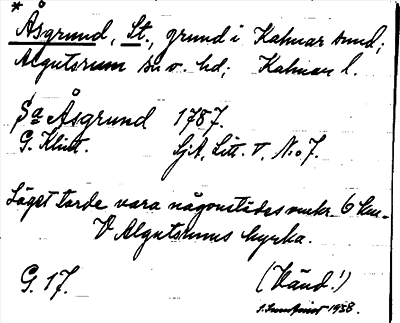 * Åsgrund, St., grund i Kalmar sund;
Algutsrum sn o. hd; Kalmar l.
Sa Åsgrund 1787.
G. Klint. SjA, Litt. V, N:o 7.
Läget torde vara någonstädes omkr. 6 km
V Algutsrums kyrka.
G. 17. (Vänd!)
1938.